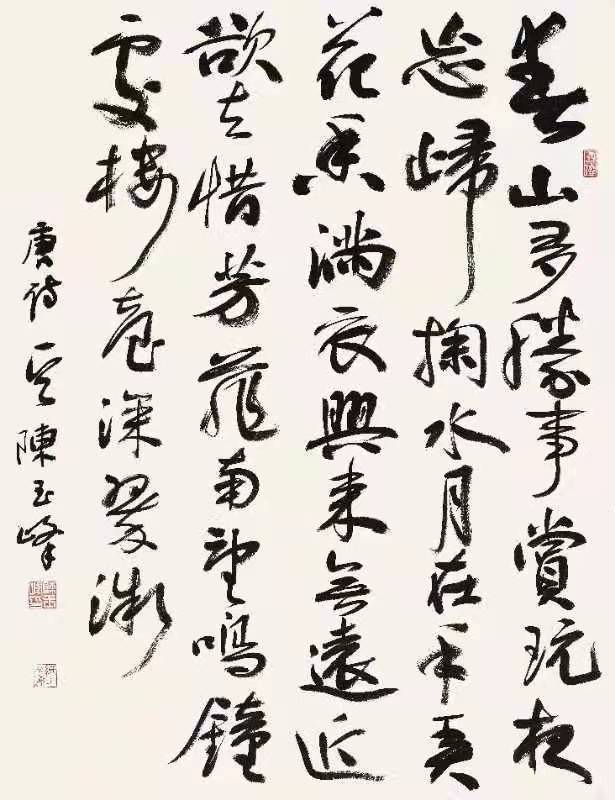 春山多勝事賞玩夜
忘歸掬水月在手弄
花香滿衣興來無遠近
欲去惜芳菲南望鳴鐘
處樓臺深翠微
唐詩陳玉峰